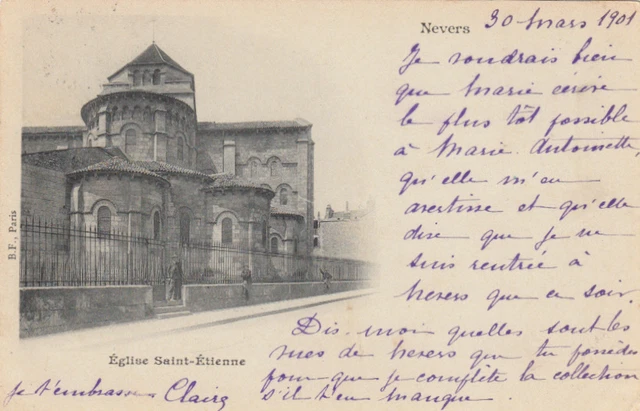 Nevers 30 Mars 1901
Je voudrais bien
que Marie écrive
le plus tôt possible
à Marie-Antoinette,
qu'elle m'en
avertisse et qu'elle
dise que je ne
suis rentrée à
Nevers que ce soir.
Dis-moi quelles sont les
vues de Nevers que tu possèdes
pour que je complète la collection
s'il t'en manque.
Je t'embrasse Claire
Église Saint-Étienne
B.F., Paris